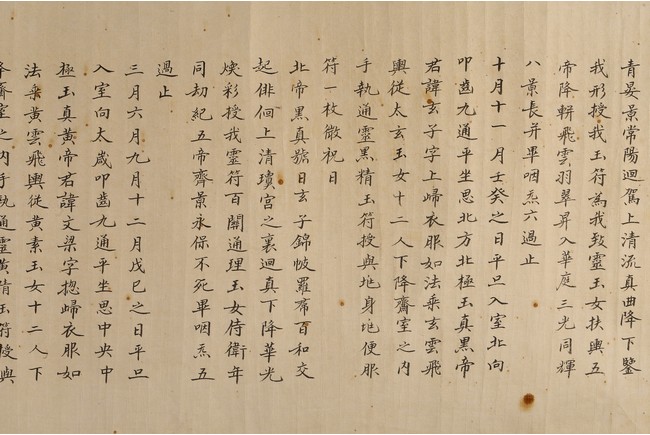 青晏景常陽迴駕上清流真曲降下鑒
我形授我玉符為我致靈玉女扶輿五
帝降軿飛雲羽翠昇入華庭三光同輝
八景長并畢咽炁六過止
十月十一月壬癸之日平旦入室北向
叩齒九通平坐思北方北極玉真黑帝
君諱玄子字上歸衣服如法乘玄雲飛
輿從太玄玉女十二人下降齋室之內
手執通靈黑精玉符授與地身地便服
符一枚微祝曰
北帝黑真號曰玄子錦帔羅帬百和交
起徘徊上清瓊宮之裏迴真下降華光
煥彩授我靈符百關通理玉女侍衛年
同劫紀五帝齊景永保不死畢咽炁五
過止
三月六月九月十二月戊巳之日平旦
入室向太歲叩齒九通平坐思中央中
極玉真黃帝君諱文梁字揔歸衣服如
法乘黃雲飛輿從黃素玉女十二人下
降齋室之內手執通靈黃精玉符授與